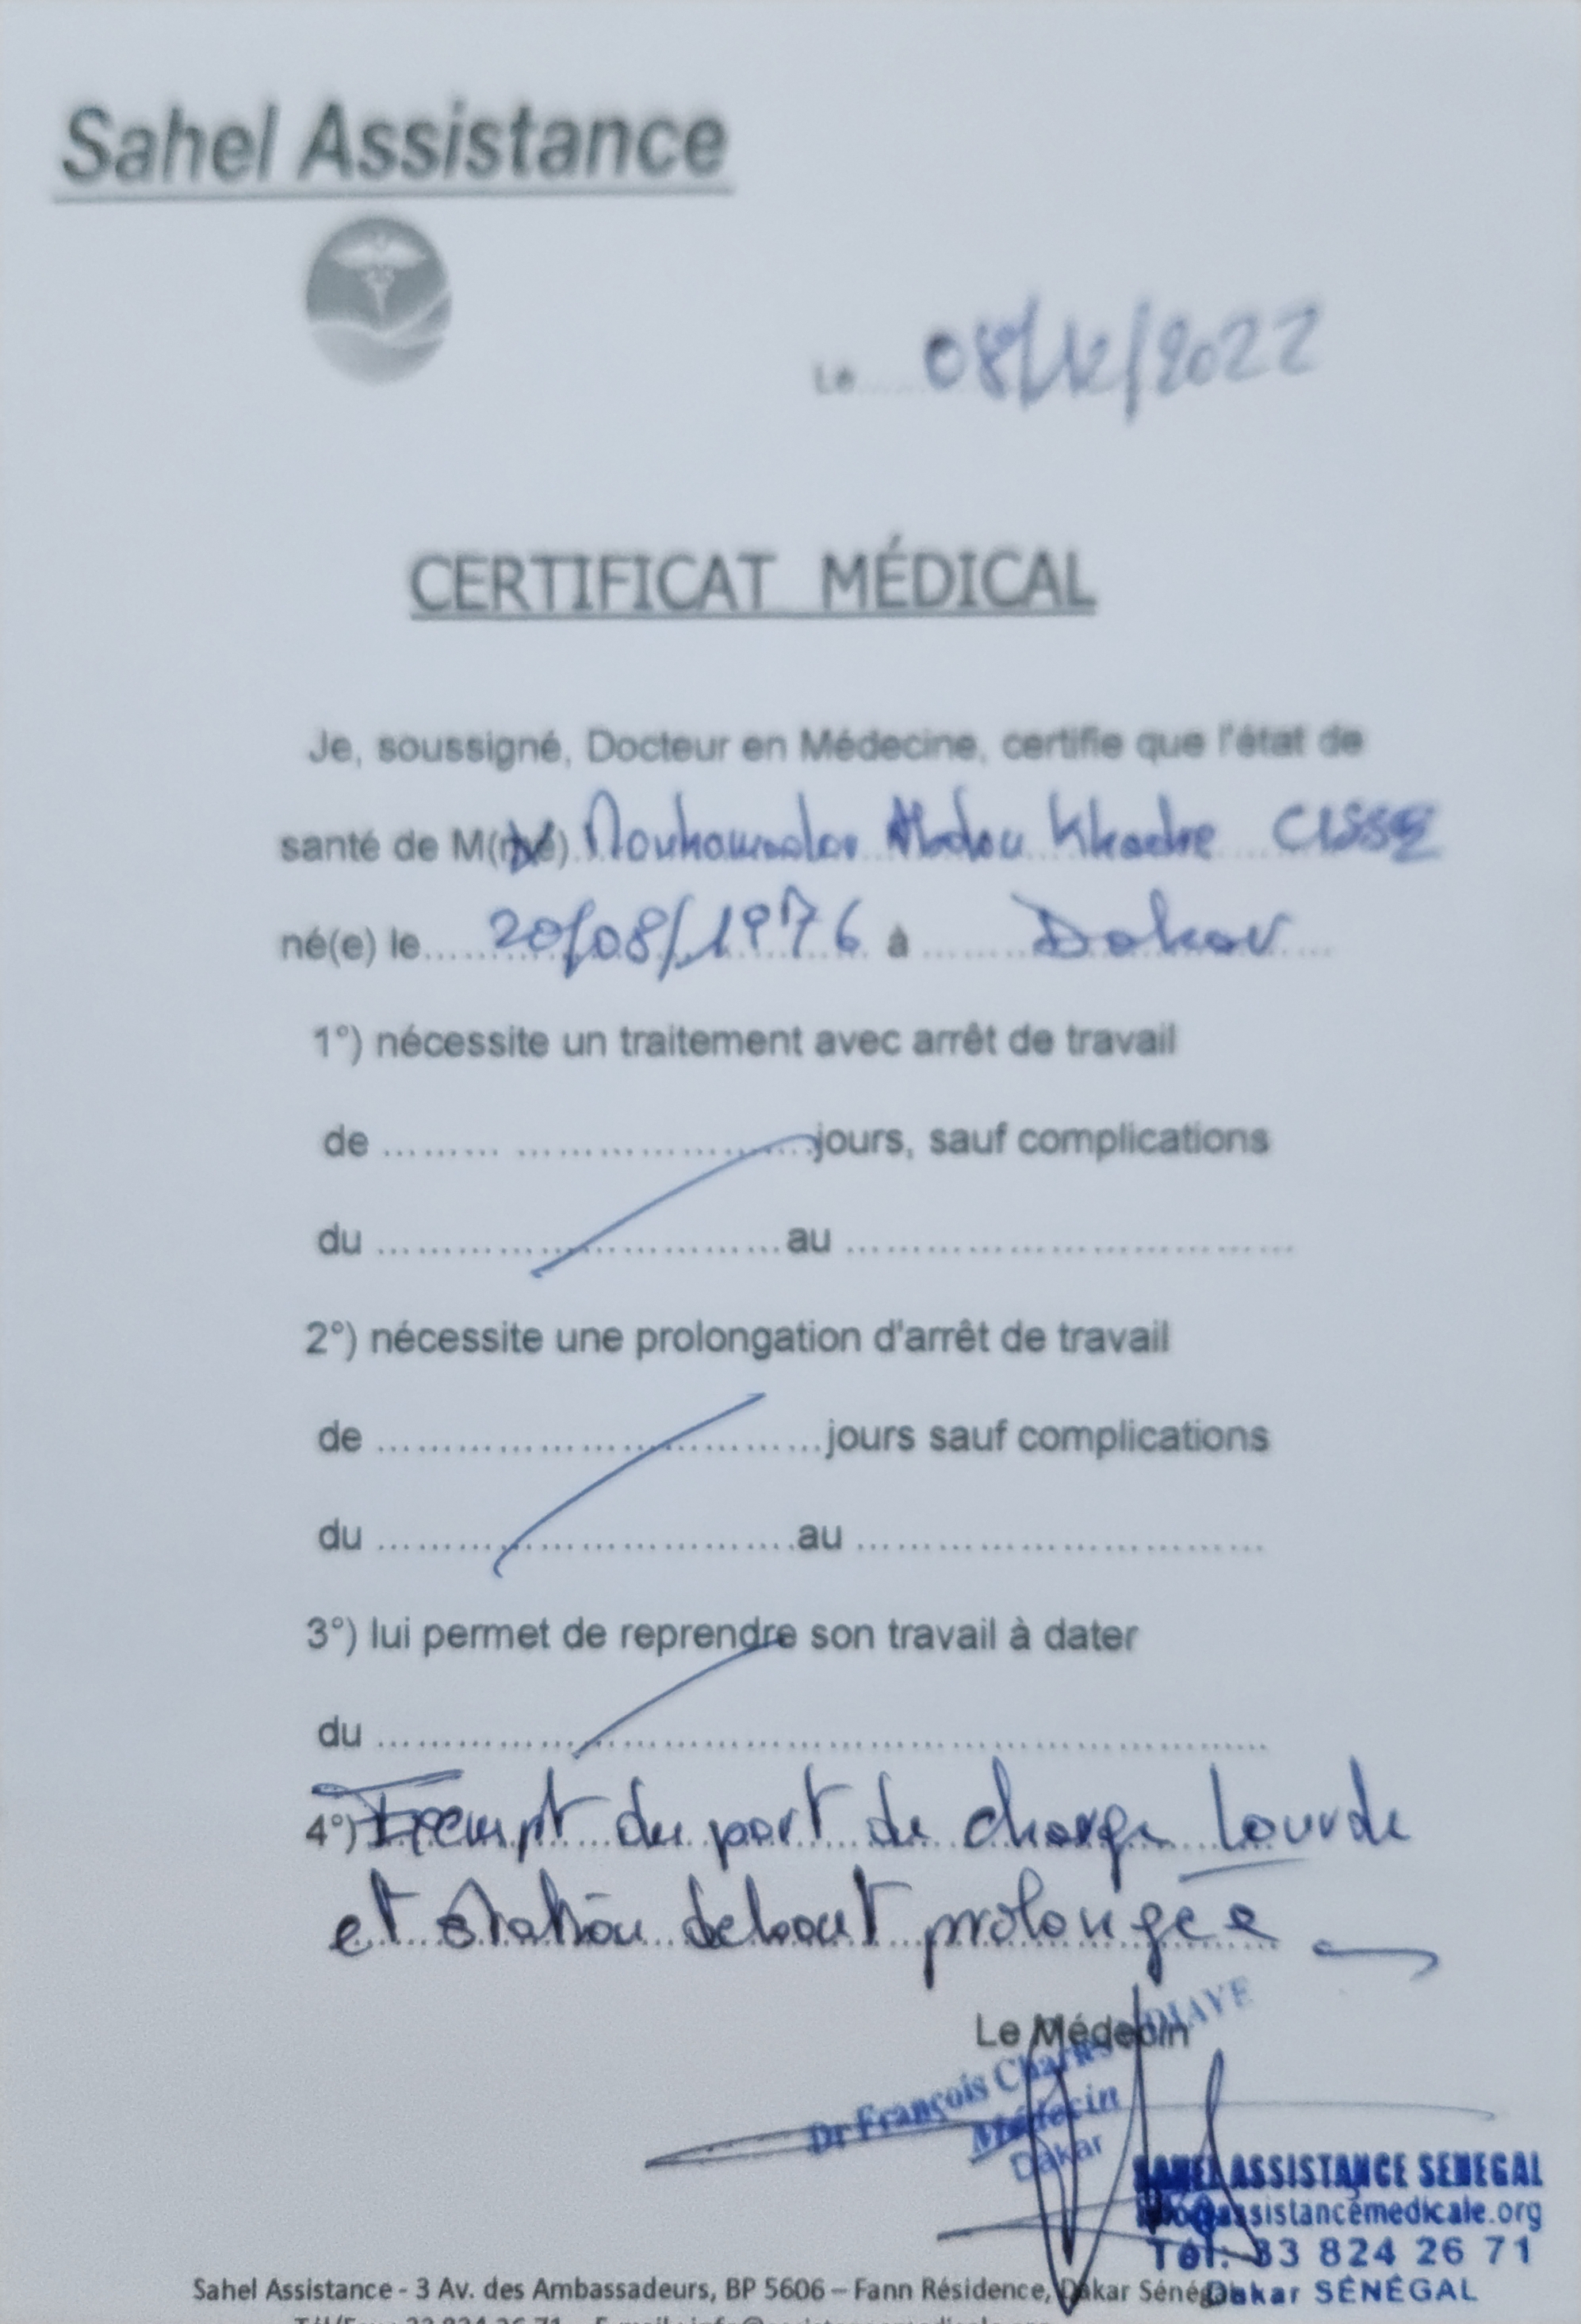 Sahel Assistance
Le 08/12/2022
CERTIFICAT MÉDICAL
Je, soussigné, Docteur en Médecine, certifie que l'état de
santé de M(me) Mouhamadou Abdou Khadre CISSE
né(e) le 20/08/1976 à Dakar
1°) nécessite un traitement avec arrêt de travail
de ............ jours, sauf complications
du ............ au ............
2°) nécessite une prolongation d'arrêt de travail
de ............ jours sauf complications
du ............ au ............
3°) lui permet de reprendre son travail à dater
du ............
4°) Exempt du port de charge lourde
et station debout prolongée
Le Médecin
Dr François Charles
Médecin
Dakar
SAHEL ASSISTANCE SENEGAL
assistancemedicale.org
Tél: 33 824 26 71
Dakar SÉNÉGAL
Sahel Assistance - 3 Av. des Ambassadeurs, BP 5606 – Fann Résidence, Dakar Sénégal